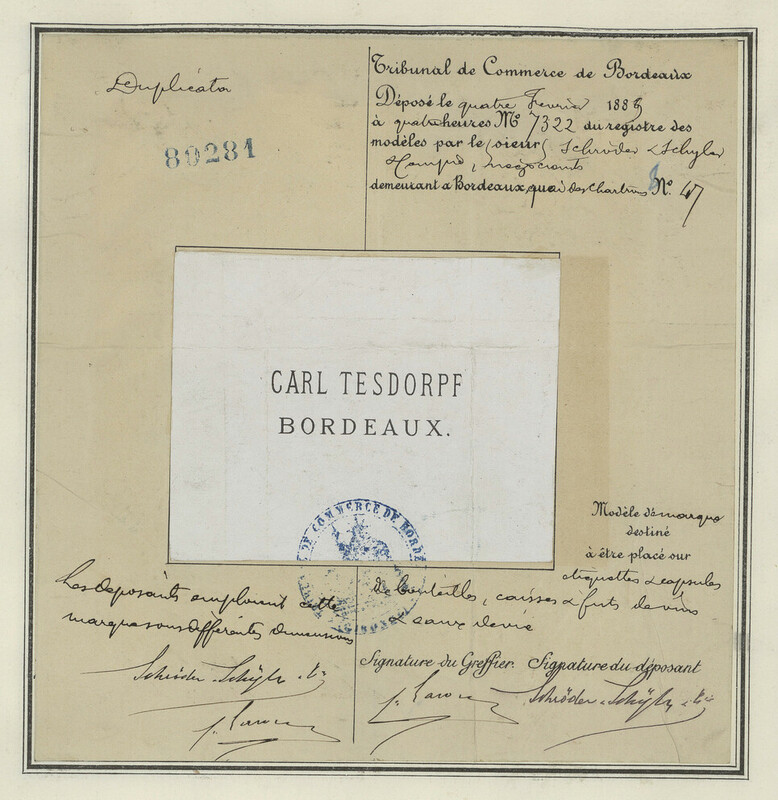 Duplicata
80281
Tribunal de Commerce de Bordeaux
Déposé le quatre Fevrier 1885
à quatre heures Nº 7322 du registre des
modèles par le sieur Schröder & Schyler
& Compie, négociants
demeurant a Bordeaux, quai des Chartrons Nº 47
CARL TESDORPF
BORDEAUX.
DE COMMERCE DE BORDE
GIRONDE
Modèle de marque
destiné
à être placé sur
etiquettes & capsules
de bouteilles, caisses & futs de vins
& eaux de vie
Les déposants emploient cette
marque sous differentes dimensions
Signature du Greffier. Signature du déposant
Schröder & Schÿler & Cie
Schröder & Schÿler & Cie